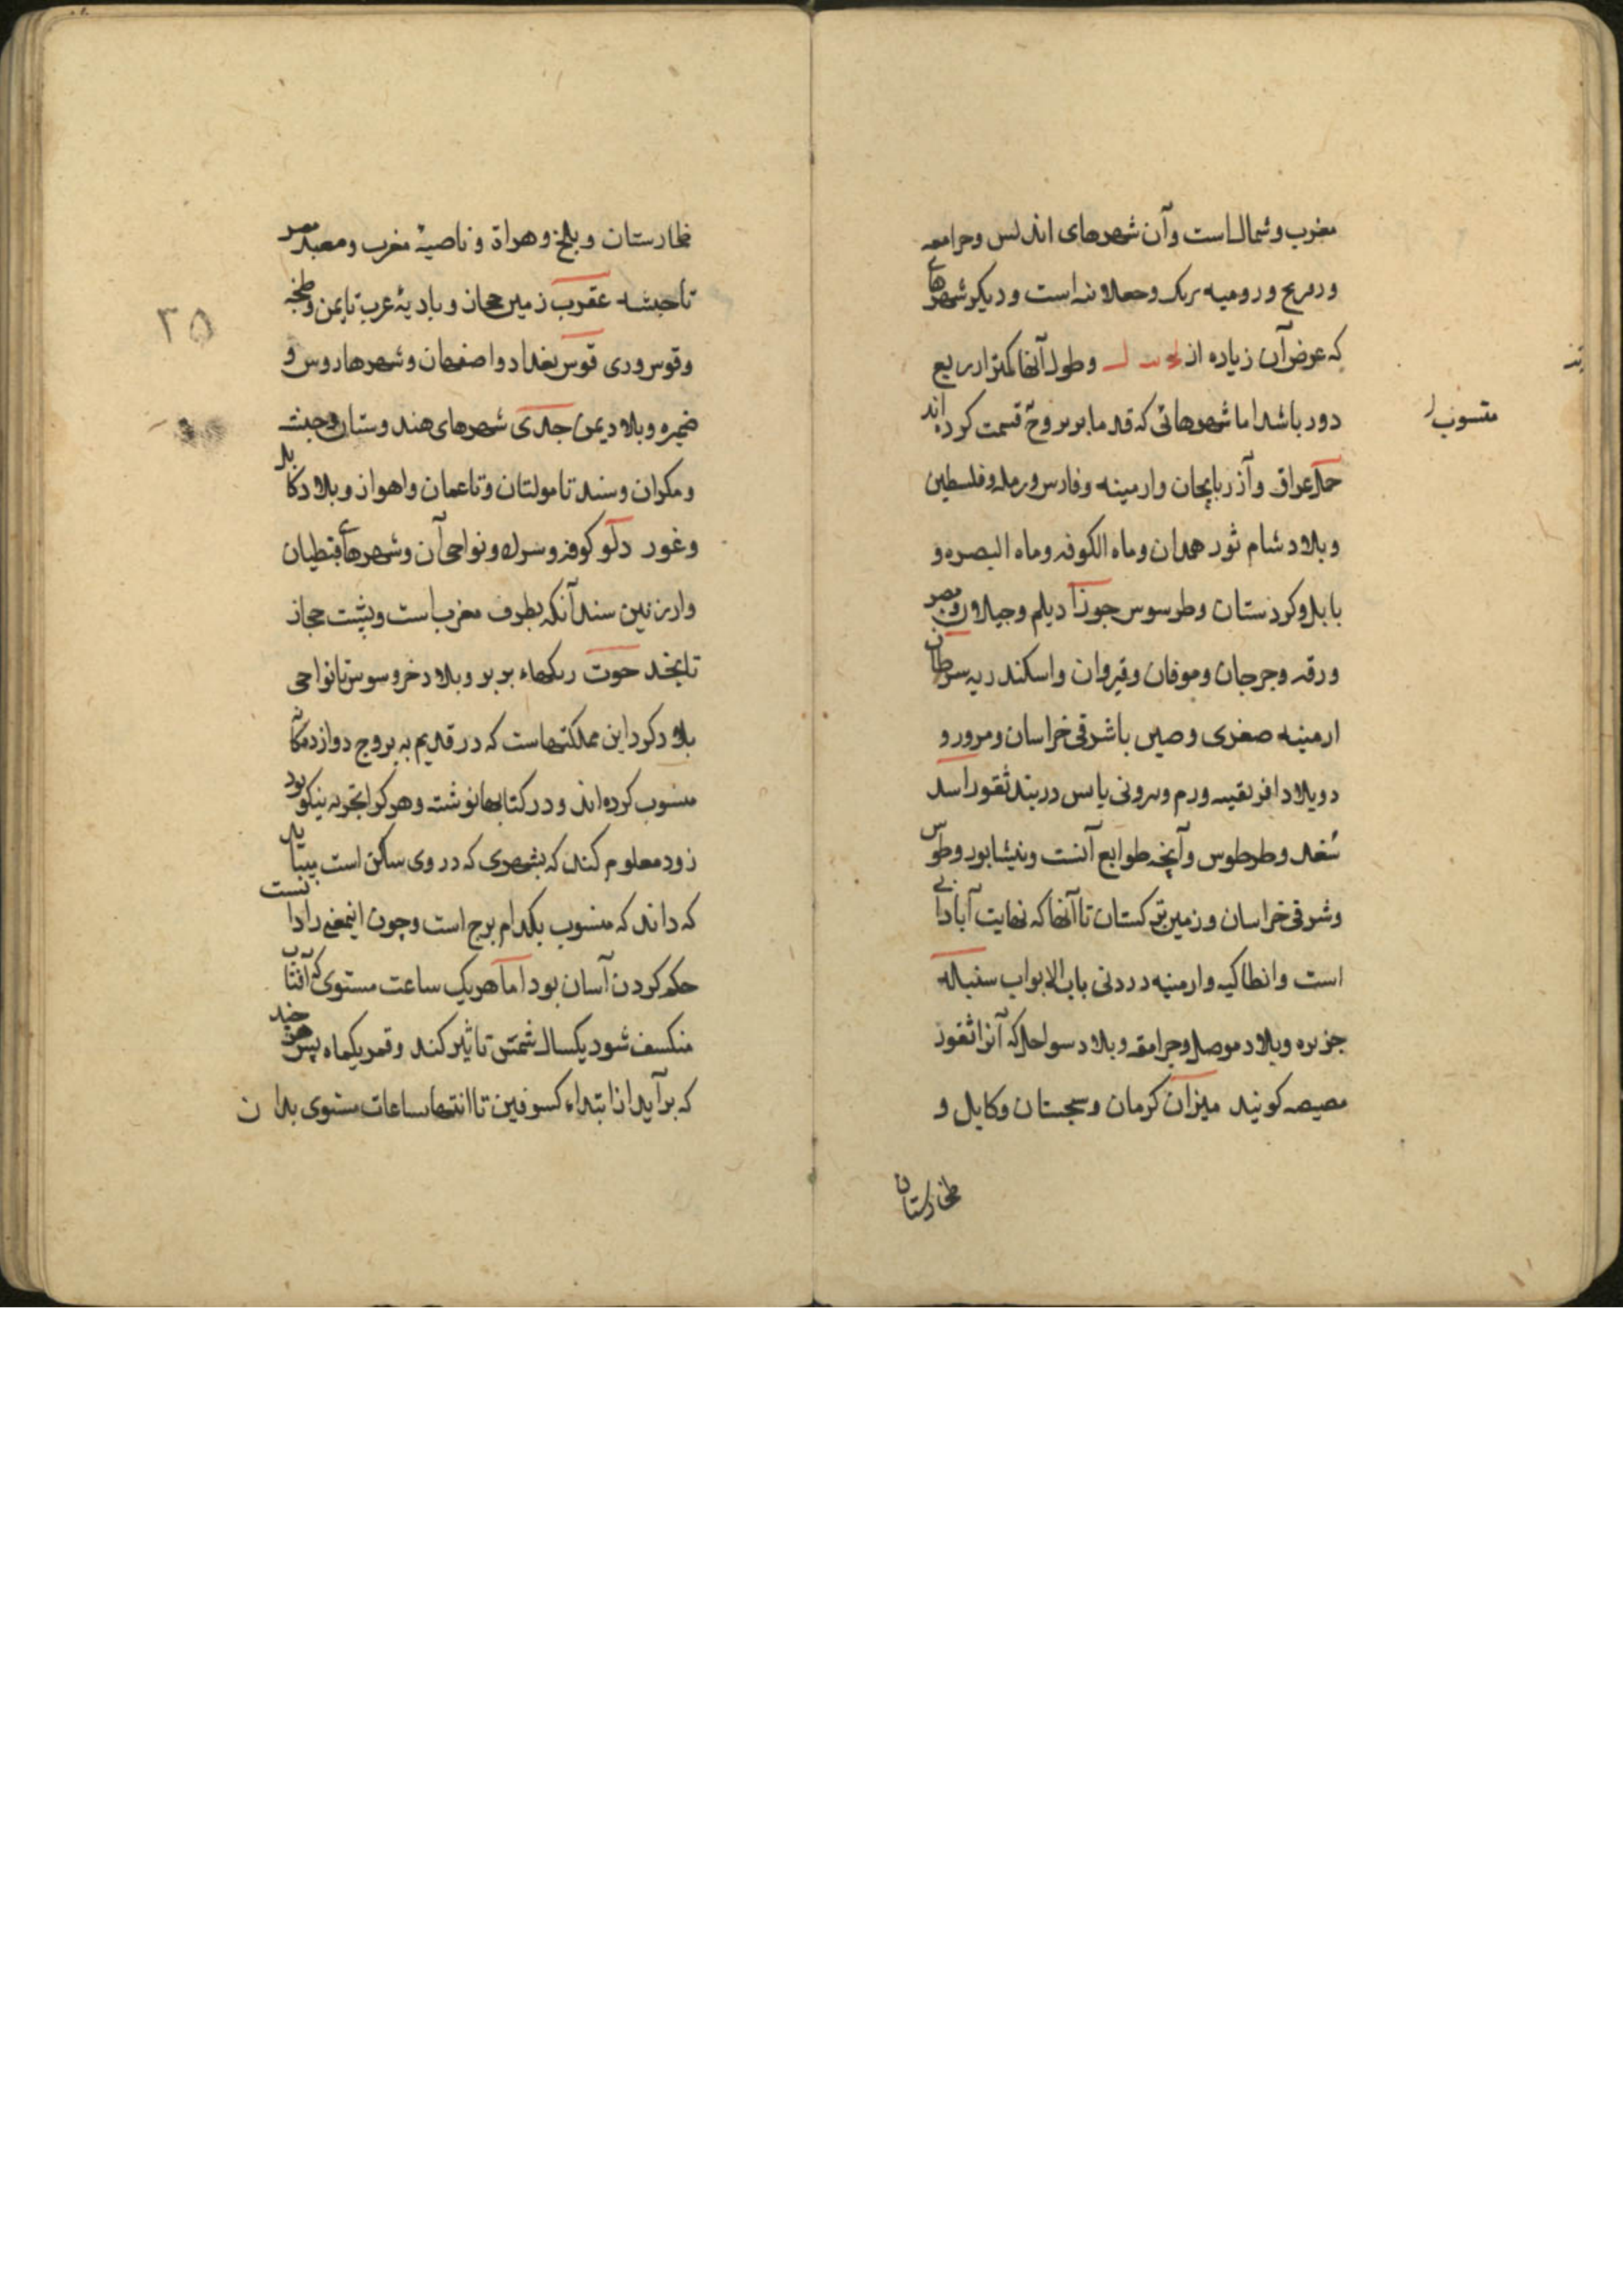 مغرب و شمال است و آن شهرهای اندلس و جرامعه
و رومیه است و دیکر شهرهای
که عرض آن زیاده از وطول آنها کمتر از ربع
دور باشد اما شهرهائی که قدما بر بروج قسمت کرده اند
منسوب
حمل عراق و آذربایجان و ارمینه و فارس و رمله و فلسطین
و بلاد شام ثور همدان و ماه الکوفه و ماه البصره و
بابل و کردستان و طرسوس جوزا دیلم و جیلان و مصر
و رقه و جرجان و موقان و قیروان و اسکندریه سرطان
ارمینه صغری و صین با شرقی خراسان و مرورو
د و بلاد افریقیه در بند ثغور اسد
سغد و طرطوس و آنچه طوابع آنست و نیشابور و طوس
و شرقی خراسان و زمین ترکستان تا آنها که نهایت آبادانی
است و انطاکیه و ارمنیه باب الابواب سنبله
جزیره و بلاد موصل و جرامقه و بلاد سواحل که آنرا ثغور
مصیصه کویند میزان کرمان و سجستان و کابل و
طخارستان
طخارستان و بلخ و هراة و ناصیهٔ مغرب و مصر
تا حبشه عقرب زمین حجاز و بادیهٔ عرب تا یمن و طنجه
و قوس و ری قوس بغداد و اصفهان و شهرها روس و
و بلاد یمن جدی شهرهای هندوستان و حبشه
و مکران و سند تا مولتان و تا عمان و اهواز و بلاد کابل
و غور دلو کوفه و نواحی آن و شهرهای قبطیان
و از زمین سند آنکه بطرف مغرب است و پشت حجاز
تا بخد حوت ریکهاء بربر و بلاد خزر و سوس تا نواحی
بلاد کرد این مملکتهاست که در قدیم به بروج دوازدهکانه
منسوب کرده اند و در کتابها نوشته و هر کرا تجربه نیکو بود
زود معلوم کند که بشهری که در وی ساکن است بیتا ید
که داند که منسوب بکدام برج است و چون اینمعنی را دانست
حکم کردن آسان بود اما هر یک ساعت مستوی که آفتاب
منکسف شود یکسال شمسی تاثیر کند و قمر یکماه پس هر چند
که برآید از ابتداء کسوفین تا انتها ساعات مستوی بدان
۳۵